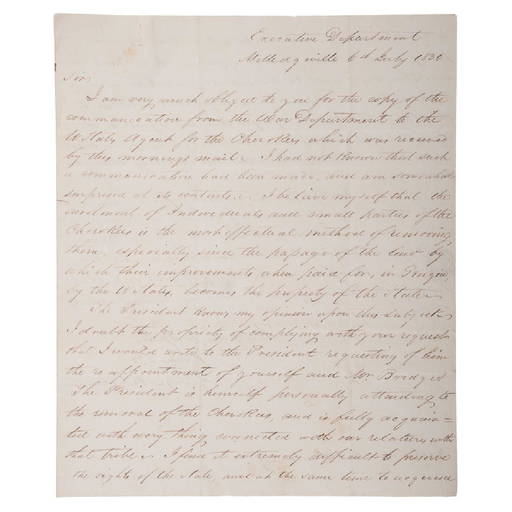 Executive Department
Milledgeville 6th July 1831
Sir,
I am very much obliged to you for the copy of the
communication from the War Department to the
U States Agent for the Cherokees which was received
by this mornings mail. I had not known that such
a communication had been made, and am somewhat
surprised at its contents. I believe myself that the
enrolment of Individuals and small parties of the
Cherokees is the most effectual method of removing
them, especially since the passage of the law by
which their improvements when paid for, in Georgia
by the U States, becomes the property of the State.
The President knows my opinion upon this subject.
I doubt the propriety of complying with your request
that I would write to the President requesting of him
the reappointment of yourself and Mr Bridges
The President is himself personally attending to
the removal of the Cherokees, and is fully acquain-
ted with every thing connected with our relations with
that tribe. I find it extremely difficult to preserve
the rights of the State, and at the same time to